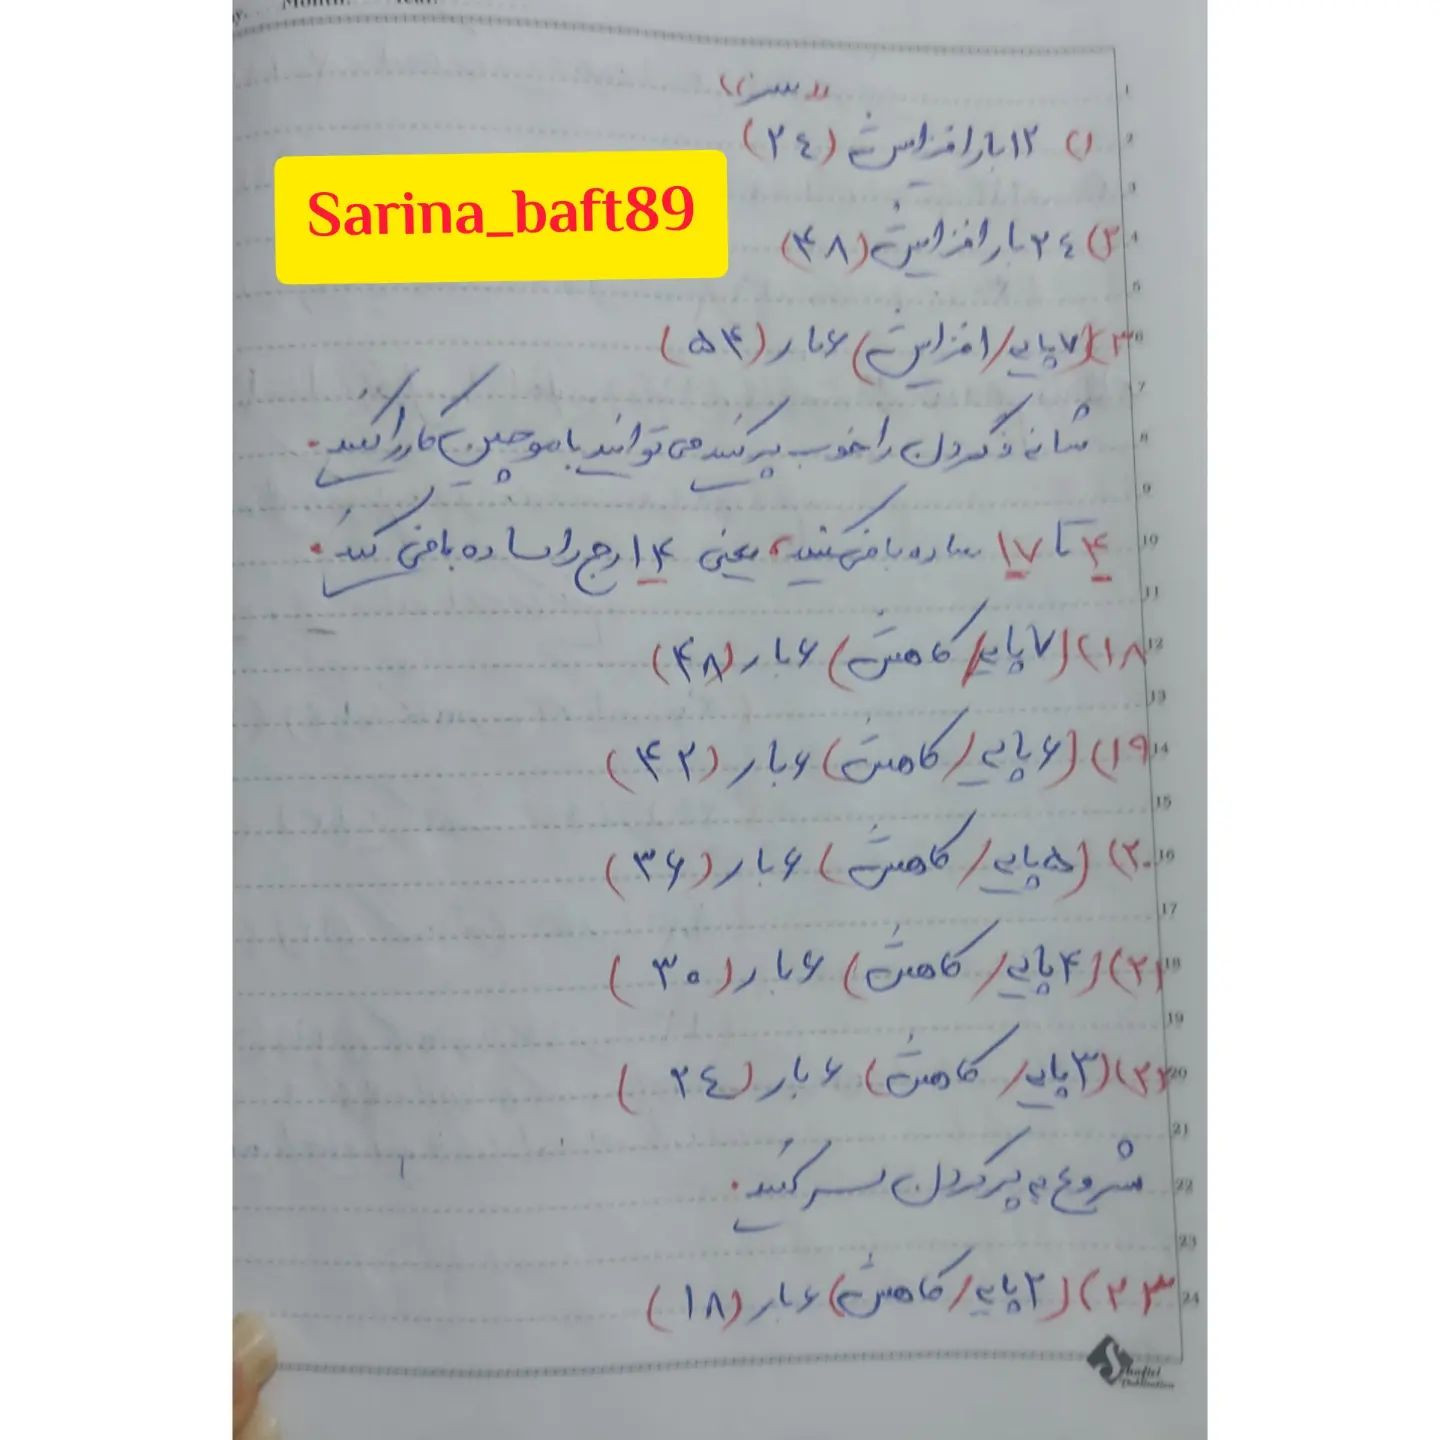 Month:
Sarina_baft89
"سر"
۱) ۱۲ بار افزایش (۲٤)
۲) ۲٤ بار افزایش (۴۸)
۳) (۷ پایه/ افزایش) ۶ بار (۵۴)
شانه و گردن را خوب پر کنید می توانید با مو چین کار را کنید.
۴ تا ۱۷ ساده بافی کنید، یعنی ۱۴ رج را ساده بافی کنید.
۱۸) (۷ پایه/ کاهش) ۶ بار (۴۸)
۱۹) (۶ پایه/ کاهش) ۶ بار (۴۲)
۲۰) (۵ پایه/ کاهش) ۶ بار (۳۶)
۲۱) (۴ پایه/ کاهش) ۶ بار (۳۰)
۲۲) (۳ پایه/ کاهش) ۶ بار (۲٤)
شروع به پر کردن سر کنید.
۲۳) (۲ پایه/ کاهش) ۶ بار (۱۸)
Shaftel
Publication